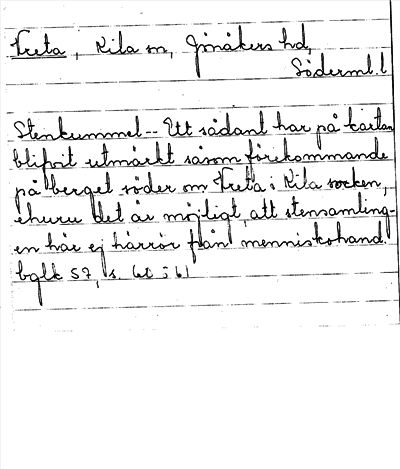 Vreta, Kila sn, Jönåkers hd,
Söderml. l
Stenkummel -- Ett sådant har på kartan
blifvit utmärkt såsom förekommande
på berget söder om Vreta i Kila socken,
ehuru det är möjligt, att stensamling-
en här ej härrör från menniskohand.
bglk 57, s. 60 o 61